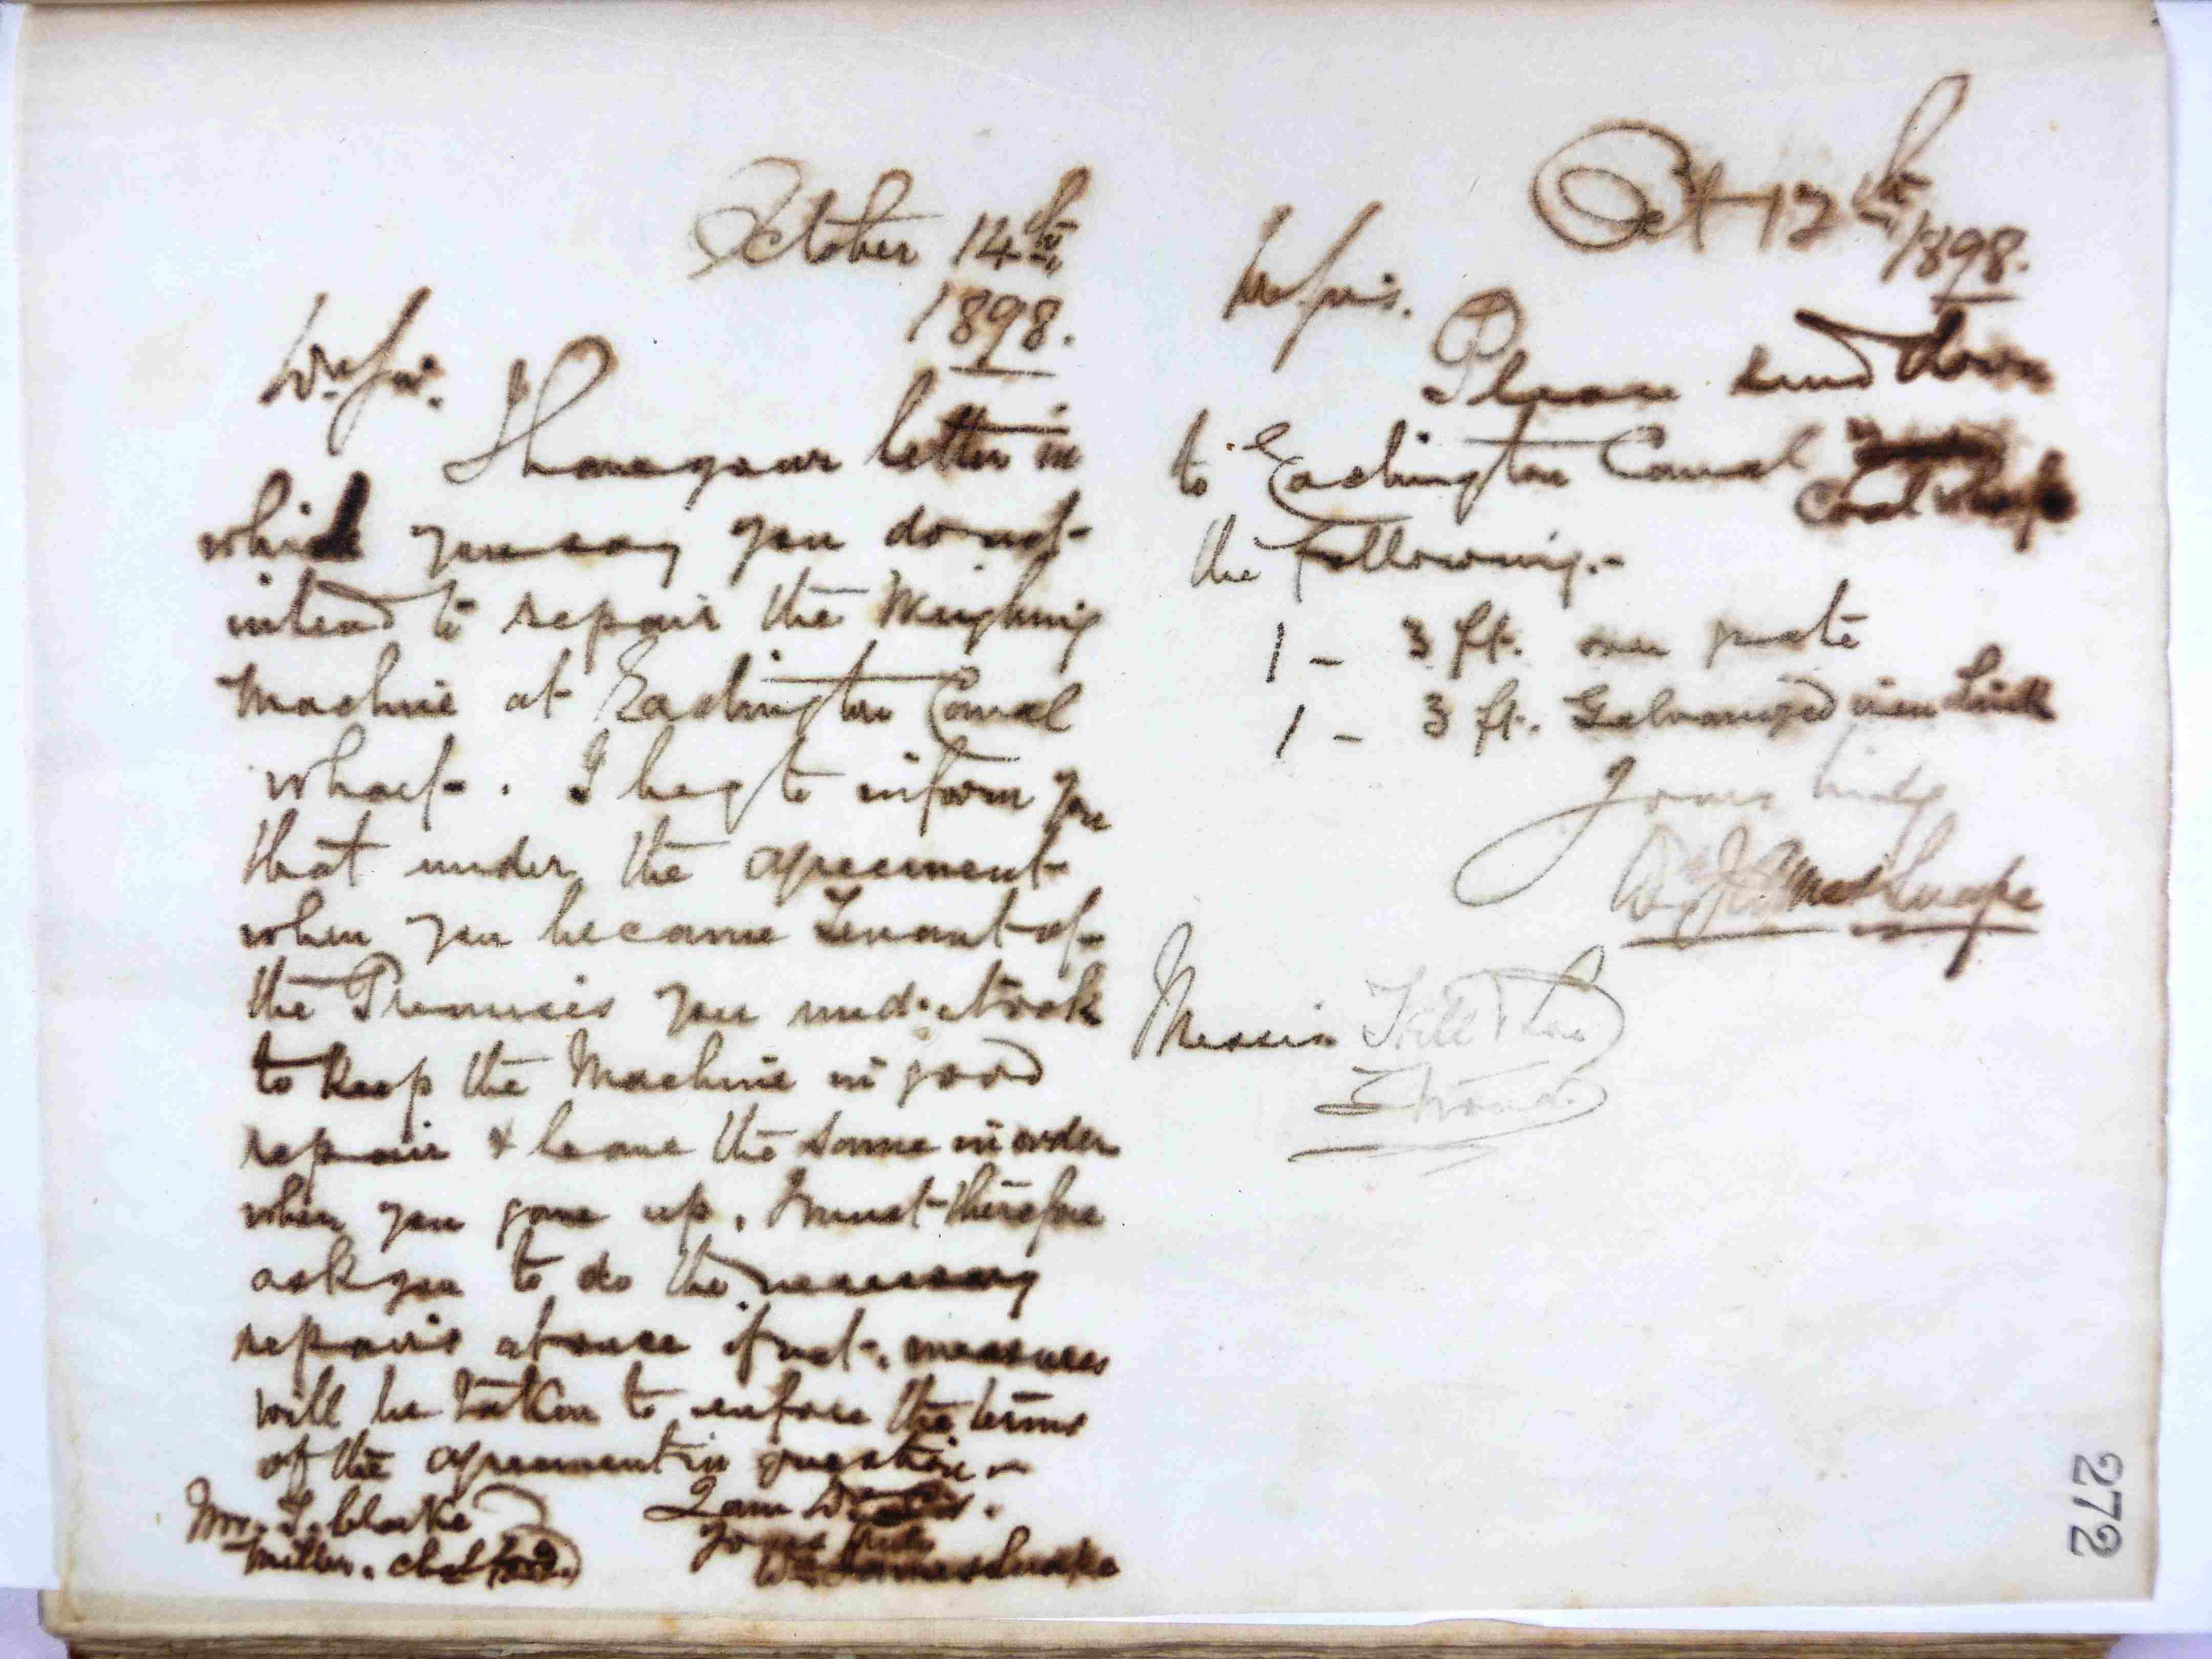 October 14th
1898.
Dr. Sir.
I have your letter in
which you say you do not
intend to repair the Weighing
Machine at Eastington Canal
wharf. I beg to inform you
that under the agreement
when you became Tenant of
the Premises you undertook
to keep the Machine in good
repair & leave the same in order
when you gave up, I must therefore
ask you to do the necessary
repairs at once if not, measures
will be taken to enforce the terms
of the agreement in question
I am D. Sir.
Yours truly
Wm James Snape
Mr. T. Clarke
Miller. Chalford
Oct 12th
1898.
Dr Sirs.
Please send down
to Eastington Canal
Coal Wharf
the following:-
1 - 3 ft. oven grate
1 - 3 ft. Galvanized iron Sink
Yours truly
Snape
Messrs
Stroud
272